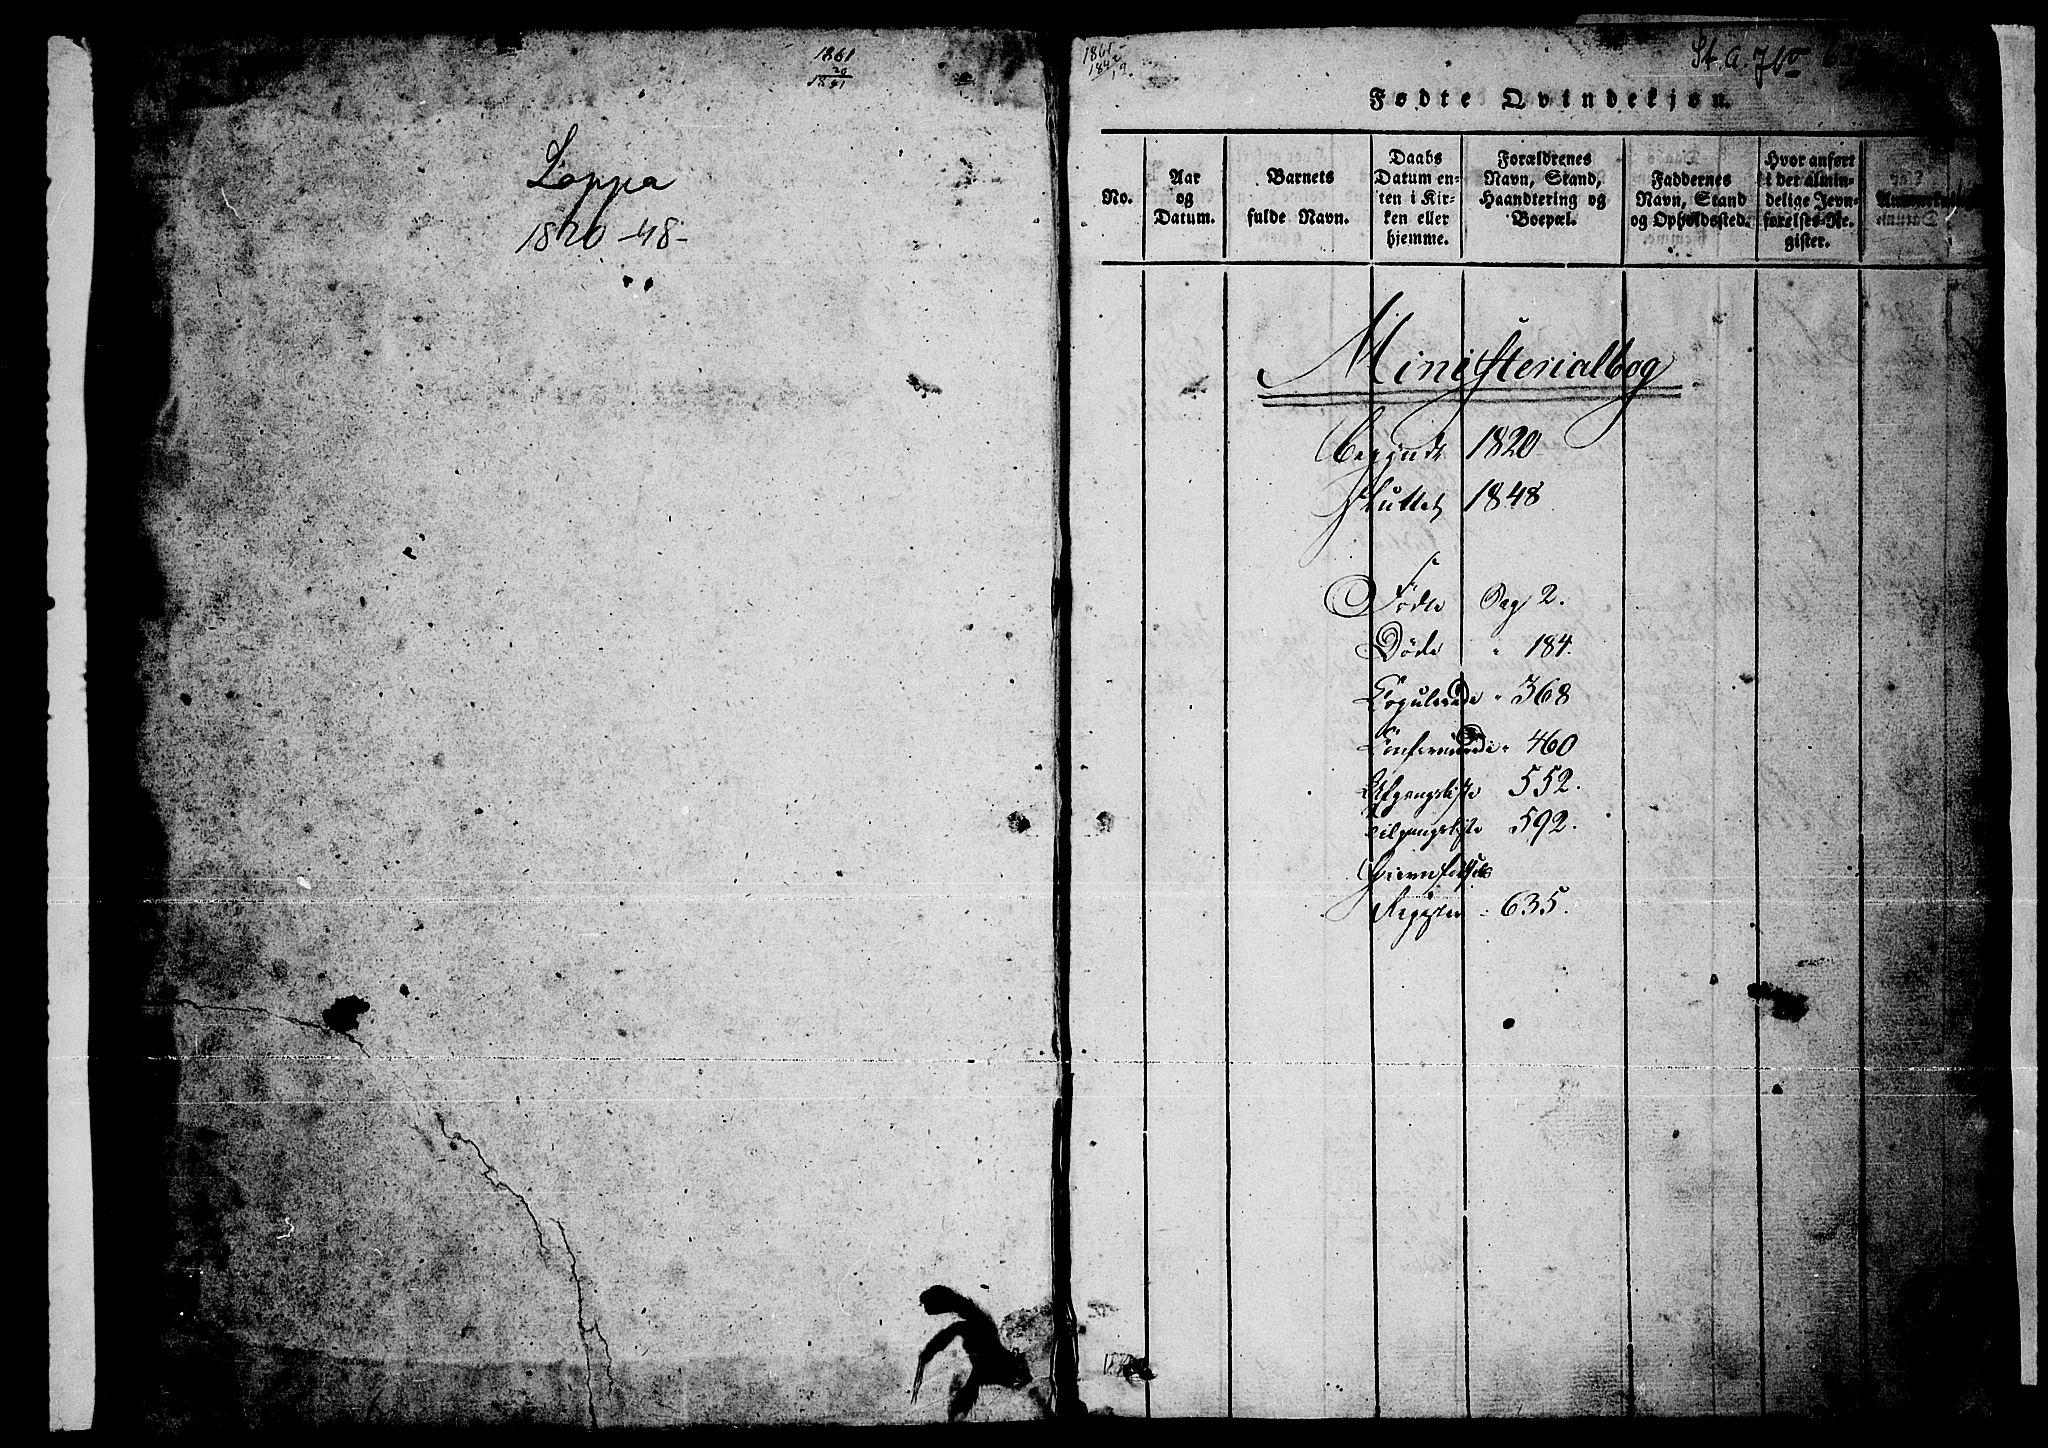 1861
20
1841
Loppa
1820-48-
1861-
St. A. No
Fødte Qvindekjøn.
No.
Aar
og
Datum.
Barnets
fulde Navn.
Daabs
Datum en-
ten i Kir-
ken eller
hjemme.
Forældrenes
Navn, Stand,
Haandtering og
Boepæl.
Faddernes
Navn, Stand
og Opholdssted.
Hvor anført
i det almin-
delige Jevn-
førelses-Re-
gister.
Ministerialbog
Begyndt 1820
sluttet 1848
Fødte Pag 2.
Døde " 184.
Copulerede " 368
Confirmerede " 460
Afgangsliste 552.
Tilgangsliste 592.
Register " 635.